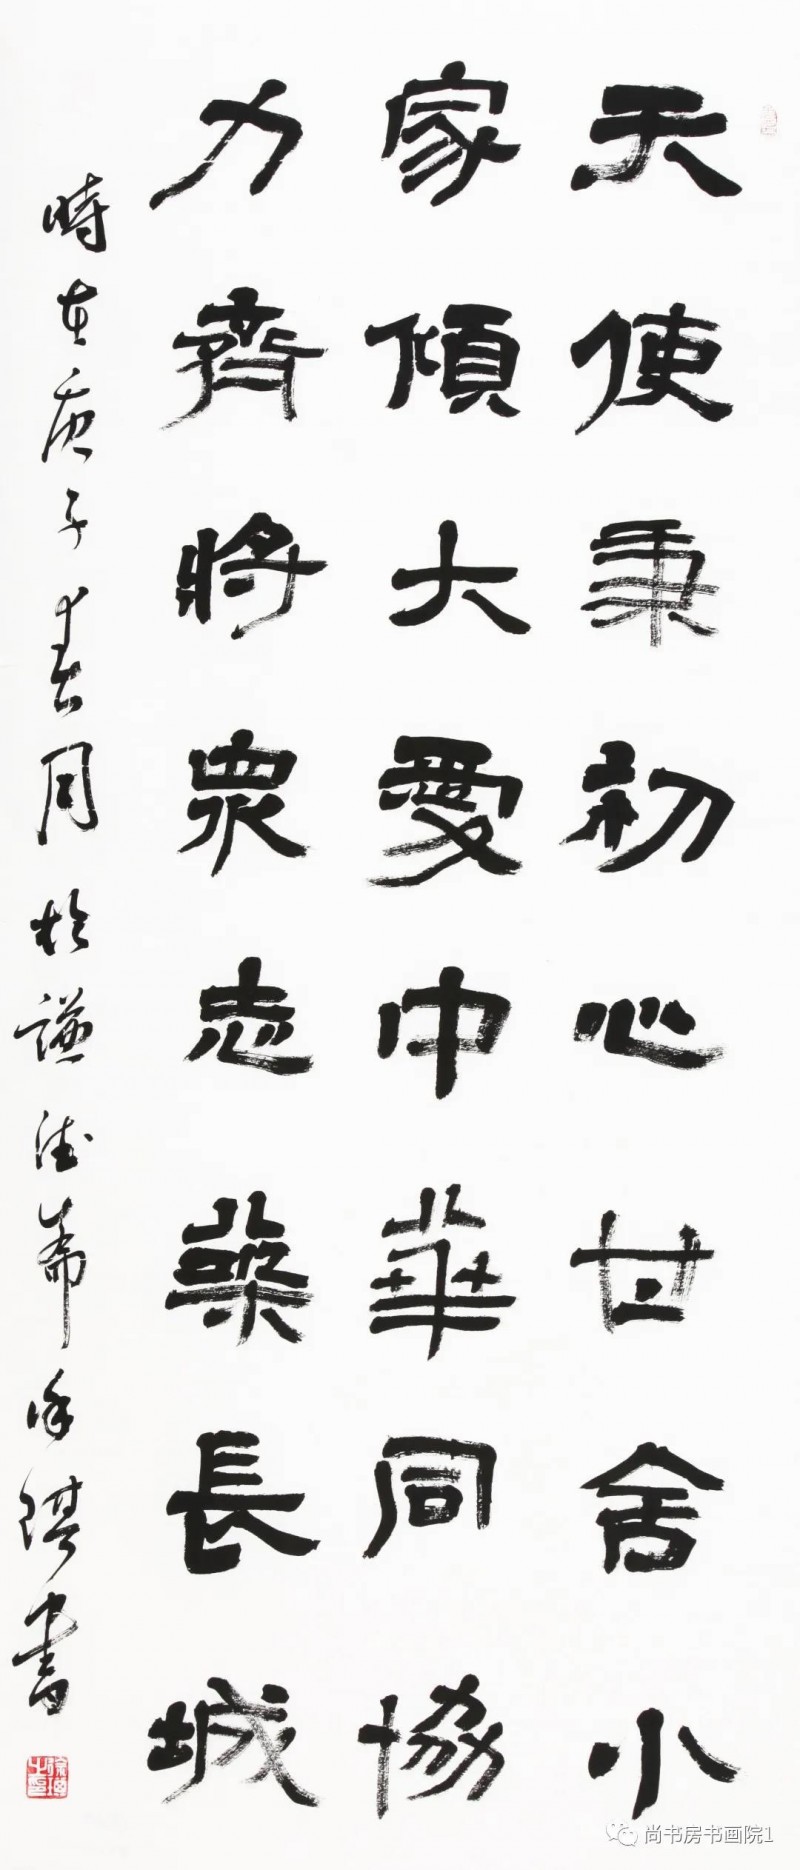 天使秉初心甘舍小
家傾大愛中華同協
力齊將衆志築長城
時在庚子春月於謙德齋徐琪書
尚书房书画院1